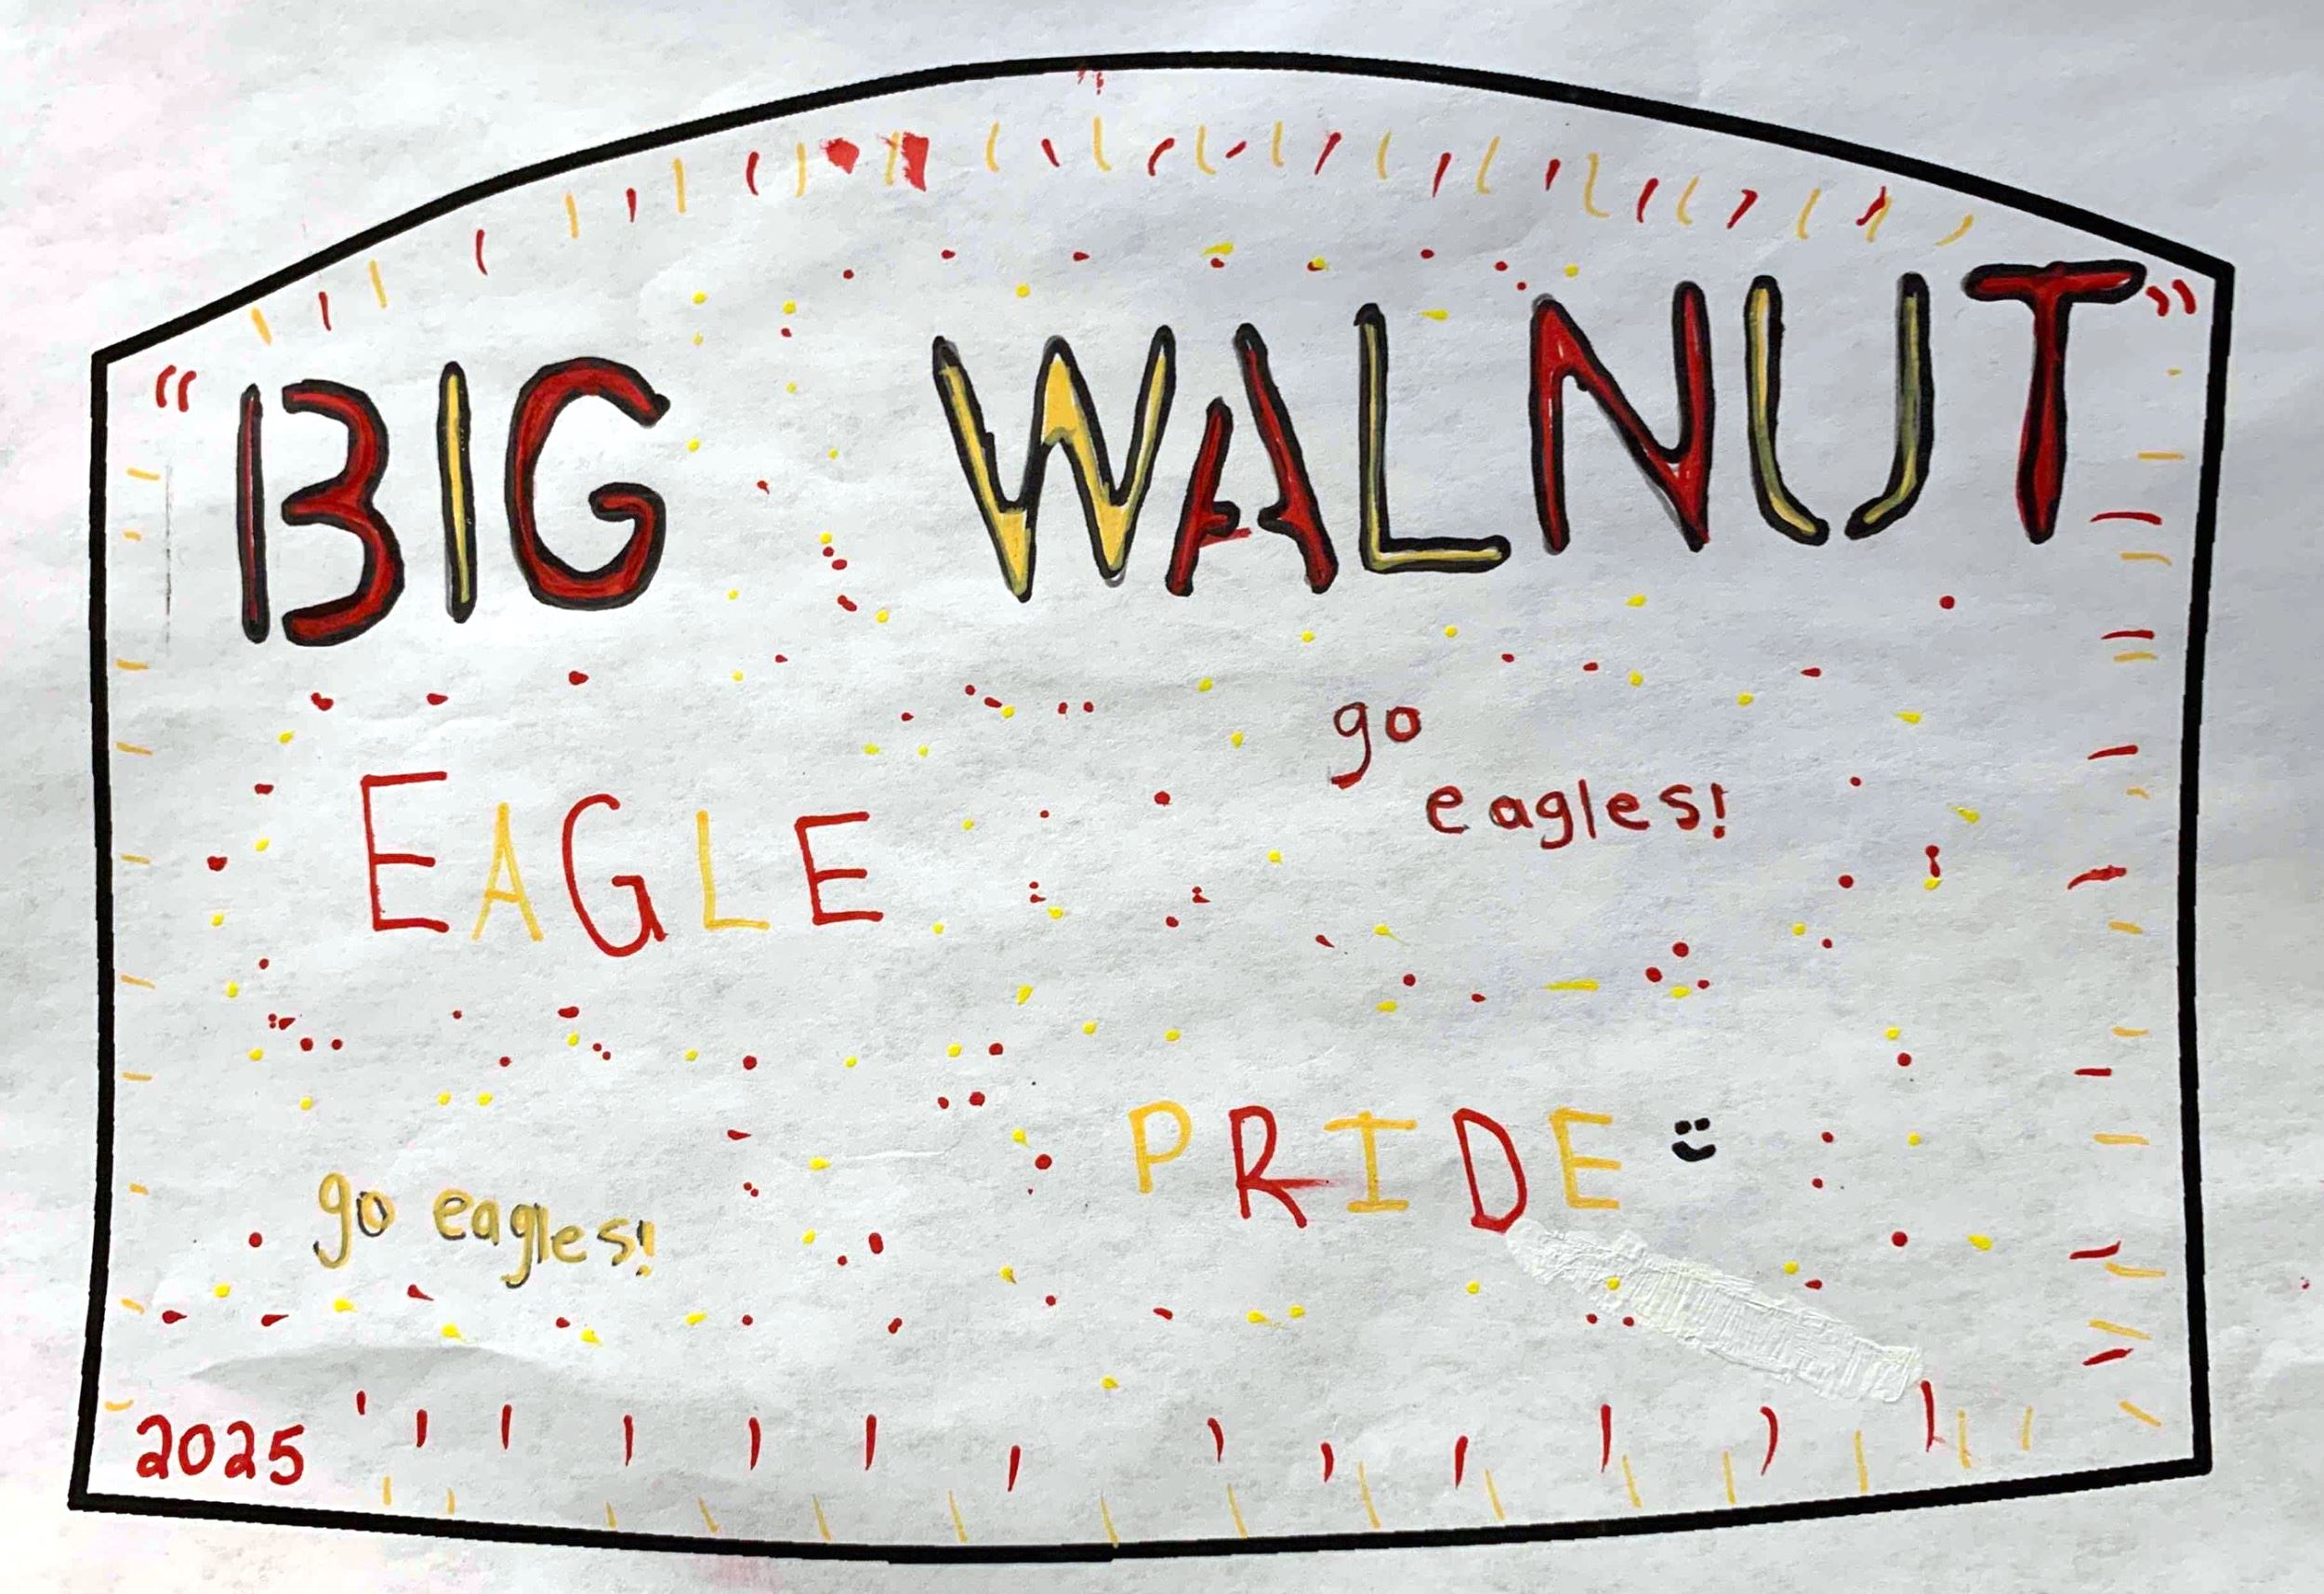 "BIG WALNUT"
EAGLE
go
eagles!
PRIDE
go eagles!
2025